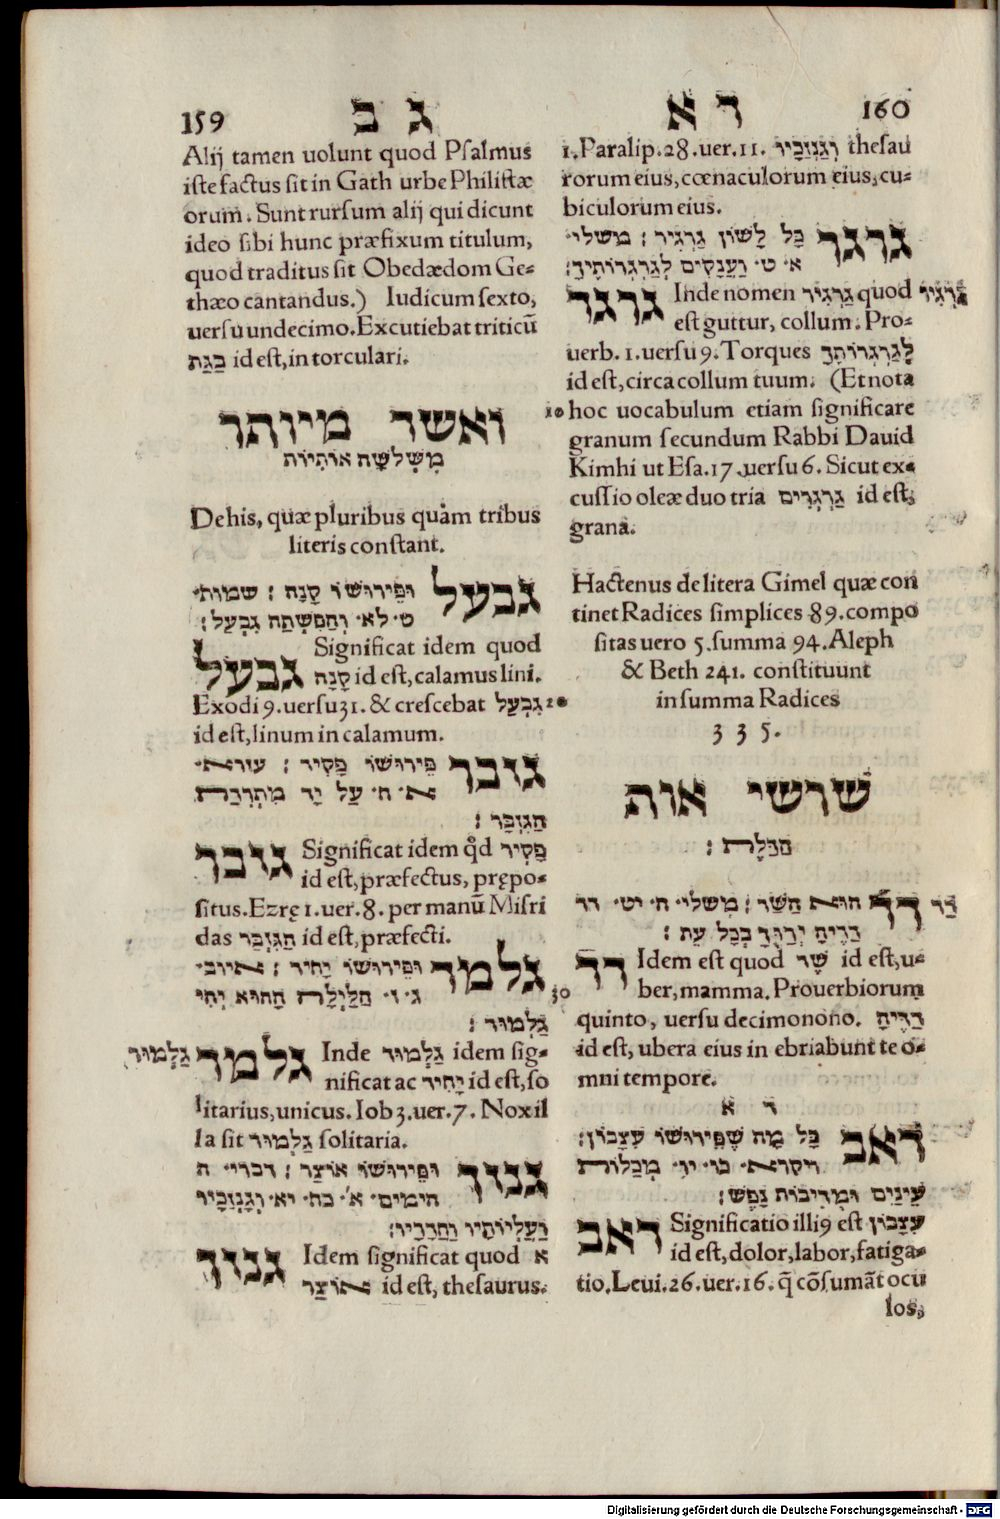 159
ג ב
Alij tamen uolunt quod Psalmus
iste factus sit in Gath urbe Philistæ
orum. Sunt rursum alij qui dicunt
ideo sibi hunc præfixum titulum,
quod traditus sit Obedædom Ge-
thæo cantandus.) Iudicum sexto,
uersu undecimo. Excutiebat triticū
בַּגַּת id est, in torculari.
ואשר מיותר
מִשְּׁלשָׁה אוֹתִיּוֹת
De his, quæ pluribus quàm tribus
literis constant.
גבעל וּפֵירוּשׁוֹ קָנֶה : שמות·
ט· לא· וְהַפִּשְׁתָּה גִּבְעֹל :
גבעל Significat idem quod
קָנֶה id est, calamus lini.
Exodi 9. uersu 31. & crescebat גִּבְעֹל
id est, linum in calamum.
גזבר פֵּירוּשׁוֹ פָּקִיד : עזרא·
א· ח· עַל יַד מִתְרְדָת
הַגִּזְבָּר :
גזבר Significat idem qd פָּקִיד
id est, præfectus, prępo-
situs. Ezrę 1. uer. 8. per manū Misri
das הַגִּזְבָּר id est, præfecti.
גלמד וּפֵירוּשׁוֹ יָחִיד : איוב·
ג· ז· הַלַּיְלָה הַהוּא יְהִי
גַלְמוּד :
גַּלְמוּד
גלמד Inde גַּלְמוּד idem sig-
nificat ac יָחִיד id est, so
litarius, unicus. Iob 3. uer. 7. Nox il
la sit גַּלְמוּד solitaria.
גנזך וּפֵירוּשׁוֹ אוֹצָר : דברי· ה
הימים· א· כח· יא· וְגַנְזַכָּיו
וַעֲלִיּוֹתָיו וַחֲדָרָיו :
גנזך Idem significat quod א
אוֹצָר id est, thesaurus.
ד א
160
1. Paralip. 28. uer. 11. וְגַנְזַכָּיו thesau
rorum eius, cœnaculorum eius, cu-
biculorum eius.
גרגר כָּל לָשׁוֹן גַּרְגִּיר : משלי·
א· ט· וַעֲנָקִים לְגַרְגְּרוֹתֶיךָ :
גרגר Inde nomen גַּרְגִּיר quod
est guttur, collum. Pro-
uerb. 1. uersu 9. Torques לְגַרְגְּרוֹתֶךָ
id est, circa collum tuum. (Et nota
10 hoc uocabulum etiam significare
granum secundum Rabbi Dauid
Kimhi ut Esa. 17. uersu 6. Sicut ex-
cussio oleæ duo tria גַּרְגְּרִים id est,
grana.
גַּרְגִּיר
Hactenus de litera Gimel quæ con
tinet Radices simplices 89. compo
sitas uero 5. summa 94. Aleph
& Beth 241. constituunt
20
in summa Radices
3 3 5.
שרשי אות
הַדָּלֶת :
דד הוּא הַשַּׁד : משלי· ה· יט· דד
דַּדֶּיהָ יְרַוֻּךָ בְכָל עֵת :
דַּד
דד Idem est quod שַׁד id est, u-
30
ber, mamma. Prouerbiorum
quinto, uersu decimonono. דַּדֶּיהָ
id est, ubera eius in ebriabunt te o-
mni tempore.
ד א
דאב כָּל מַה שֶׁפֵּירוּשׁוֹ עִצָּבוֹן :
ויקרא· כו· יו· מְכַלּוֹת
עֵינַיִם וּמְדִיבוֹת נָפֶשׁ :
דאב Significatio illi9 est עִצָּבוֹן
id est, dolor, labor, fatiga-
tio. Leui. 26. uer. 16. q̄ cōsumāt ocu
los,
Digitalisierung gefördert durch die Deutsche Forschungsgemeinschaft - DFG